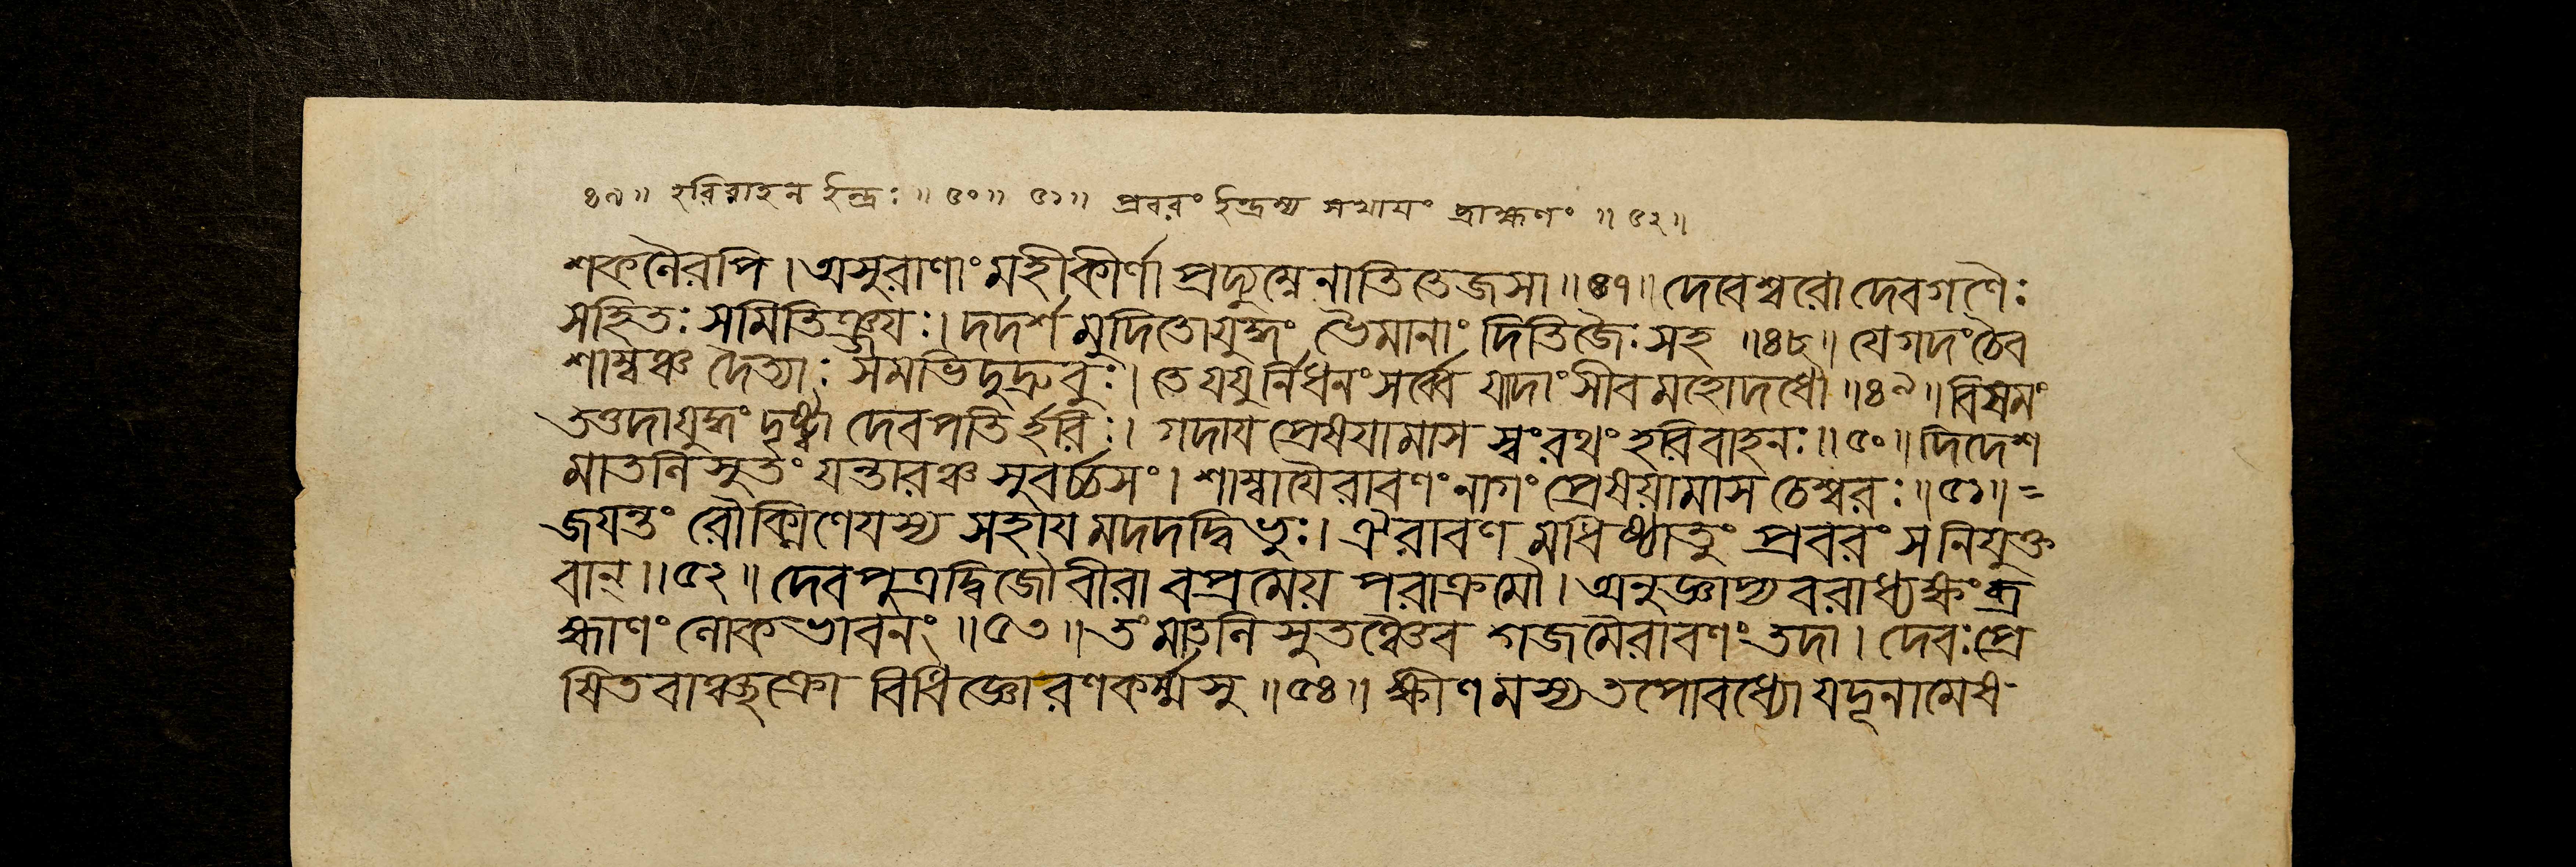 ৪৯॥ হরিবাহন ইন্দ্রঃ ॥ ৫০॥ ৫১॥ প্রবরং ইন্দ্রস্য সখায়ং ব্রাহ্মণং ॥ ৫২॥
শকলৈরপি । অসুরাণাং মহীকীর্ণা প্রদ্যুম্নেনাতিতেজসা ॥ ৪৭॥ দেবেশ্বরো দেবগণৈঃ
সহিতঃ সমিতিঞ্জয়ঃ । দদর্শ মুদিতো যুদ্ধং ভৈমানাং দিতিজৈঃ সহ ॥ ৪৮॥ যে গদং চৈব
শাম্বঞ্চ দৈত্যাঃ সমভিদুদ্রুবুঃ । তে যযুর্নিধনং সর্ব্বে যাদাংসীব মহোদধৌ ॥ ৪৯॥ বিষমং
তত্তদা যুদ্ধং দৃষ্ট্বা দেবপতির্হরিঃ । গদায় প্রেষয়ামাস স্বং রথং হরিবাহনঃ ॥ ৫০॥ দিদেশ
মাতলিসুতং যন্তারঞ্চ সুবর্চ্চসং । শাম্বায়ৈরাবণং নাগং প্রেষয়ামাস চেশ্বরঃ ॥ ৫১॥ =
জয়ন্তং রৌক্মিণেয়স্য সহায়মদদদ্বিভুঃ । ঐরাবণমধিষ্ঠাতুং প্রবরং সনিযুক্ত
বান্ ॥ ৫২॥ দেবপুত্রদ্বিজৌ বীরাবপ্রমেয়পরাক্রমৌ । অনুজ্ঞাপ্য বরাধ্যক্ষং ব্র
হ্মাণং লোকভাবনং ॥ ৫৩॥ তং মাতলিসুতঞ্চৈব গজমৈরাবণং তদা । দেবঃ প্রে
ষিতবাঞ্ছক্রো বিধিজ্ঞো রণকর্ম্মসু ॥ ৫৪॥ ক্ষীণমস্য তপো বধ্যো যদূনামেষ